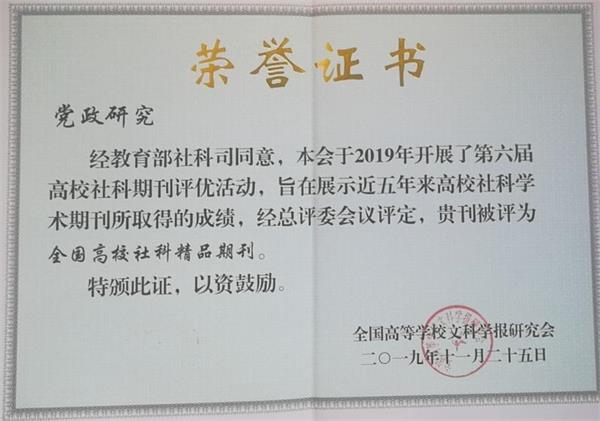 荣誉证书
党政研究
经教育部社科司同意，本会于2019年开展了第六届
高校社科期刊评优活动，旨在展示近五年来高校社科学
术期刊所取得的成绩，经总评委会议评定，贵刊被评为
全国高校社科精品期刊。
特颁此证，以资鼓励。
全国高等学校文科学报研究会
二〇一九年十一月二十五日